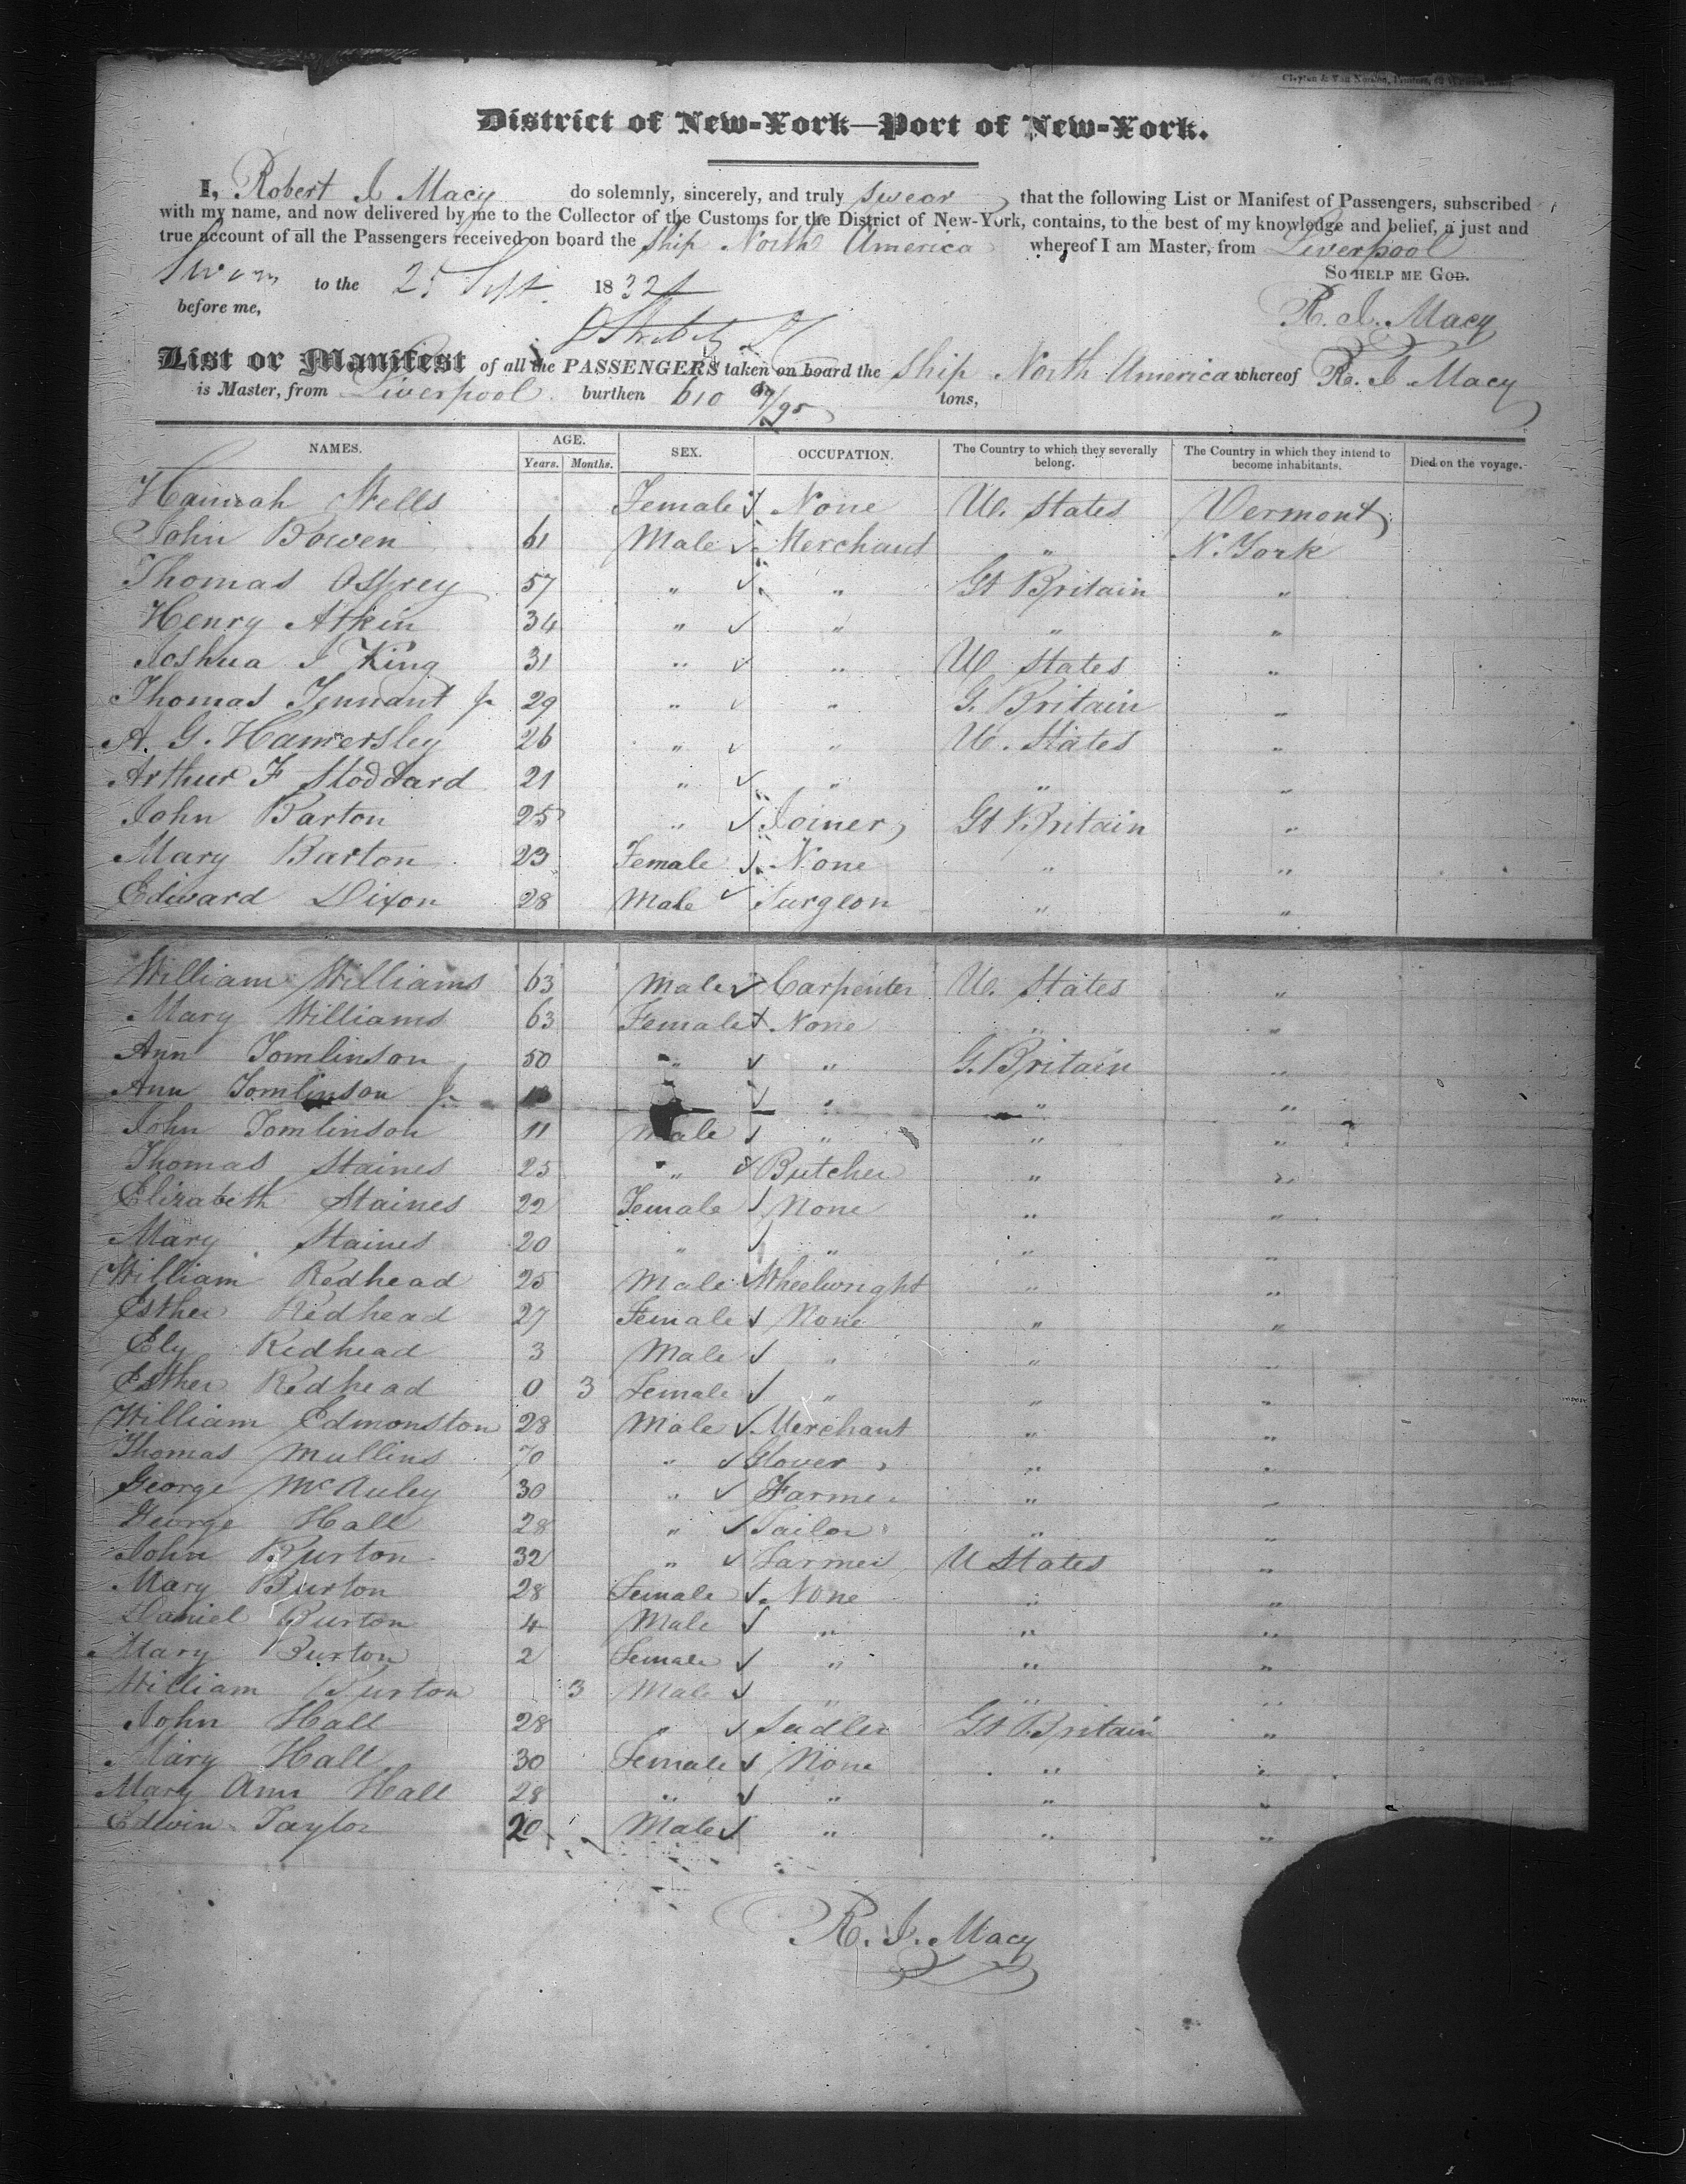 Clayton & Van Norden, Printers,
District of New-York—Port of New-York.
I, Robert J Macy do solemnly, sincerely, and truly swear that the following List or Manifest of Passengers, subscribed
with my name, and now delivered by me to the Collector of the Customs for the District of New-York, contains, to the best of my knowledge and belief, a just and
true account of all the Passengers received on board the Ship North America whereof I am Master, from Liverpool
So help me God.
Sworn to the 25 Sept. 1832
before me,
R. J. Macy
List or Manifest of all the PASSENGERS taken on board the Ship North America whereof R. J Macy
is Master, from Liverpool burthen 610 tons,
NAMES. AGE. SEX. OCCUPATION. The Country to which they severally belong. The Country in which they intend to become inhabitants. Died on the voyage.
Years. Months.
Hannah Wells Female None U. States Vermont
John Bowen 61 Male Merchant " N. York
Thomas Osprey 57 " " Gt Britain "
Henry Atkin 34 " " " "
Joshua J King 31 " " U States "
Thomas Tennant Jr 29 " " G. Britain "
A. G. Hamersley 26 " " U. States "
Arthur F Stoddard 21 " " " "
John Barton 25 " Joiner Gt Britain "
Mary Barton 23 Female None " "
Edward Dixon 28 Male Surgeon " "
William Williams 63 Male Carpenter U. States "
Mary Williams 63 Female None " "
Ann Tomlinson 50 " " G. Britain "
Ann Tomlinson Jr " " "
John Tomlinson 11 Male " " "
Thomas Staines 25 " Butcher " "
Elizabeth Staines 22 Female None " "
Mary Staines 20 " " " "
William Redhead 25 Male Wheelwright " "
Esther Redhead 27 Female None " "
Ely Redhead 3 Male " " "
Esther Redhead 0 3 Female " " "
William Edmonston 28 Male Merchant " "
Thomas Mullins 70 " Glover " "
George McAuley 30 " Farmer " "
George Hall 28 " Tailor " "
John Burton 32 " Farmer U States "
Mary Burton 28 Female None " "
Daniel Burton 4 Male " " "
Mary Burton 2 Female " " "
William Burton 3 Male " " "
John Hall 28 " Sadler Gt Britain "
Mary Hall 30 Female None " "
Mary Ann Hall 28 " " " "
Edwin Taylor 20 Male " " "
R. J. Macy